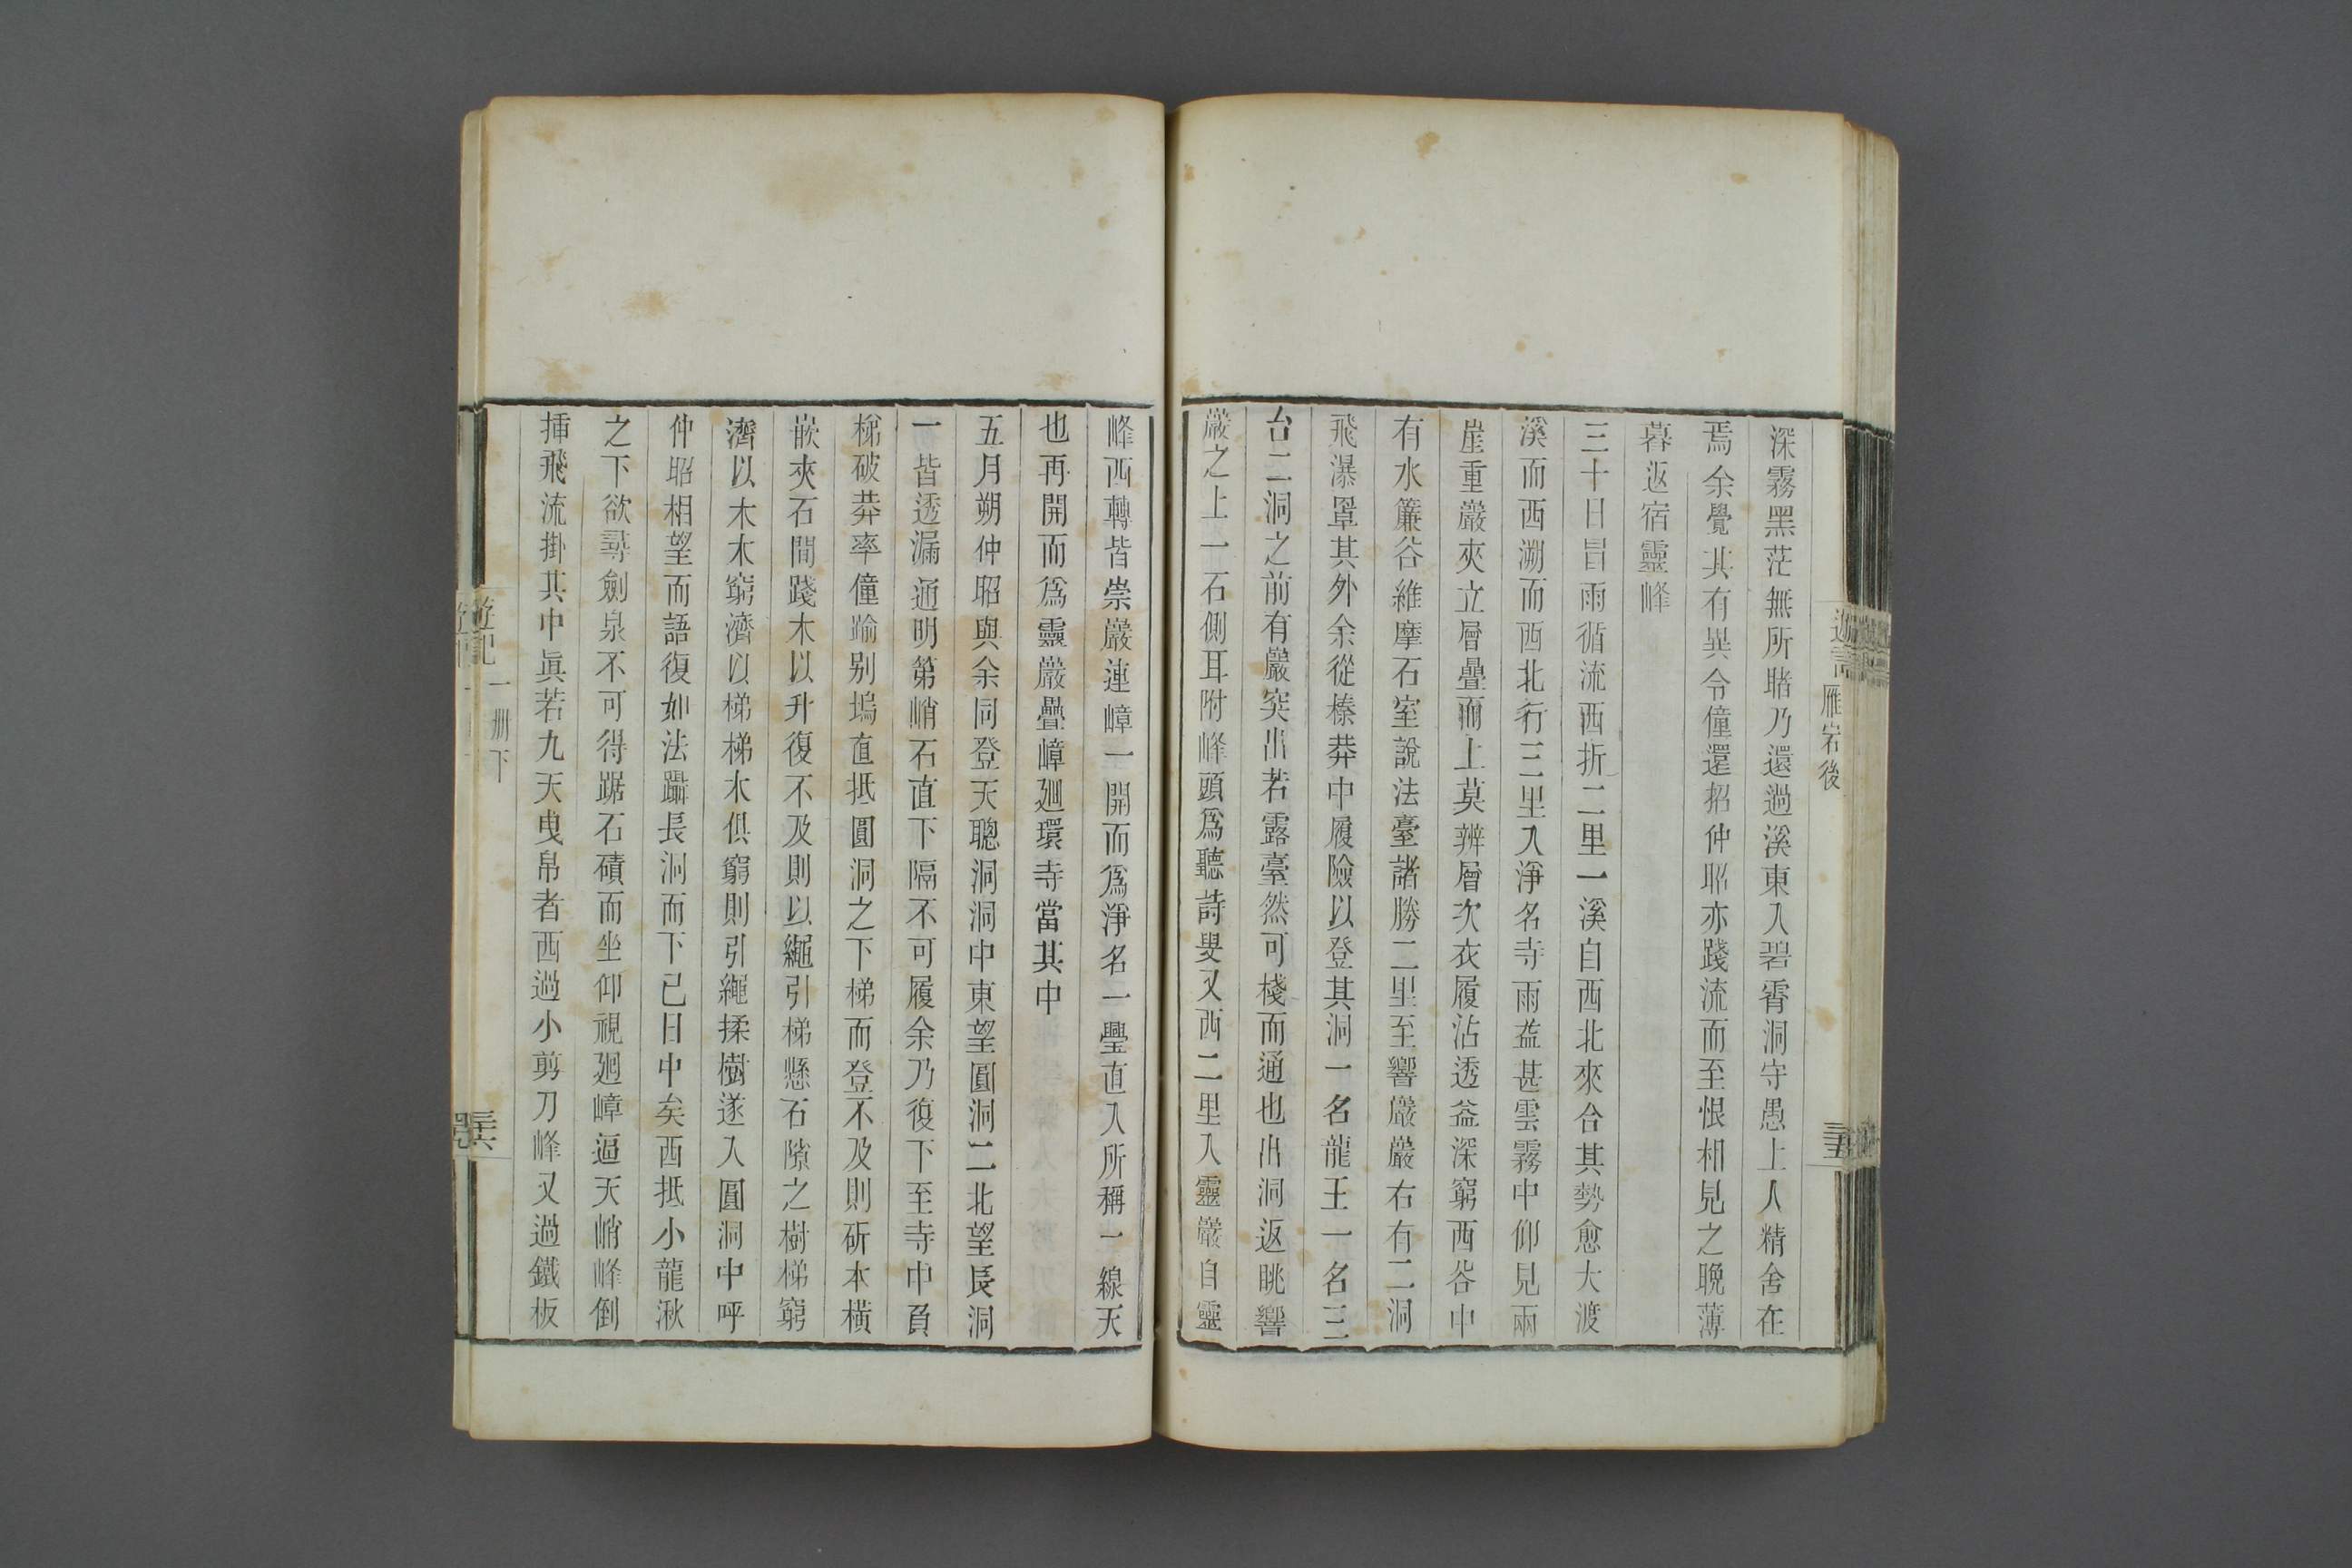 遊記
雁宕後
深霧黑茫無所睹乃還過溪東入碧霄洞守愚上人精舍在
焉余覺其有異令僮還招仲昭亦踐流而至恨相見之晚薄
暮返宿靈峰
三十日冒雨循流西折二里一溪自西北來合其勢愈大渡
溪而西溯而西北行三里入淨名寺雨益甚雲霧中仰見兩
崖重巖夾立層疊而上莫辨層次衣履沾透益深窮西谷中
有水簾谷維摩石室說法臺諸勝二里至響巖巖右有二洞
飛瀑罩其外余從榛莽中履險以登其洞一名龍王一名三
台二洞之前有巖突出若露臺然可棧而通也出洞返眺響
巖之上一石側耳附峰頭爲聽詩叟又西二里入靈巖自靈
峰西轉皆崇巖連嶂一開而爲淨名一璺直入所稱一線天
也再開而爲靈巖疊嶂廻環寺當其中
五月朔仲昭與余同登天聰洞洞中東望圓洞二北望長洞
一皆透漏通明第峭石直下隔不可履余乃復下至寺中負
梯破莽率僮踰别塢直抵圓洞之下梯而登不及則斫木橫
嵌夾石間踐木以升復不及則以繩引梯懸石隙之樹梯窮
濟以木木窮濟以梯梯木俱窮則引繩揉樹遂入圓洞中呼
仲昭相望而語復如法躡長洞而下已日中矣西抵小龍湫
之下欲尋劍泉不可得踞石磧而坐仰視廻嶂逼天峭峰倒
插飛流掛其中眞若九天曳帛者西過小剪刀峰又過鐵板
遊記
一册下